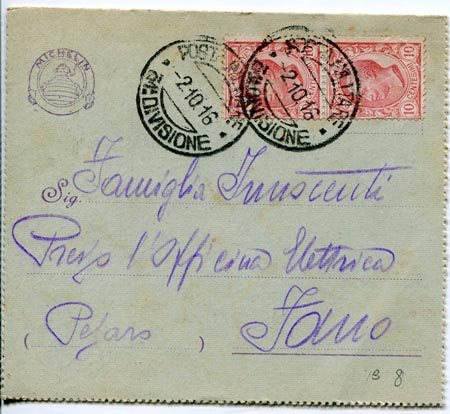 MICHELIN
POSTA MILITARE
-2.10.16
DIVISIONE
POSTA MILITARE
-2.10.16
DIVISIONE
10 10
Sig. Famiglia Innocenti
Presso l'Officina Elettrica
(Pesaro) Fano
B 8